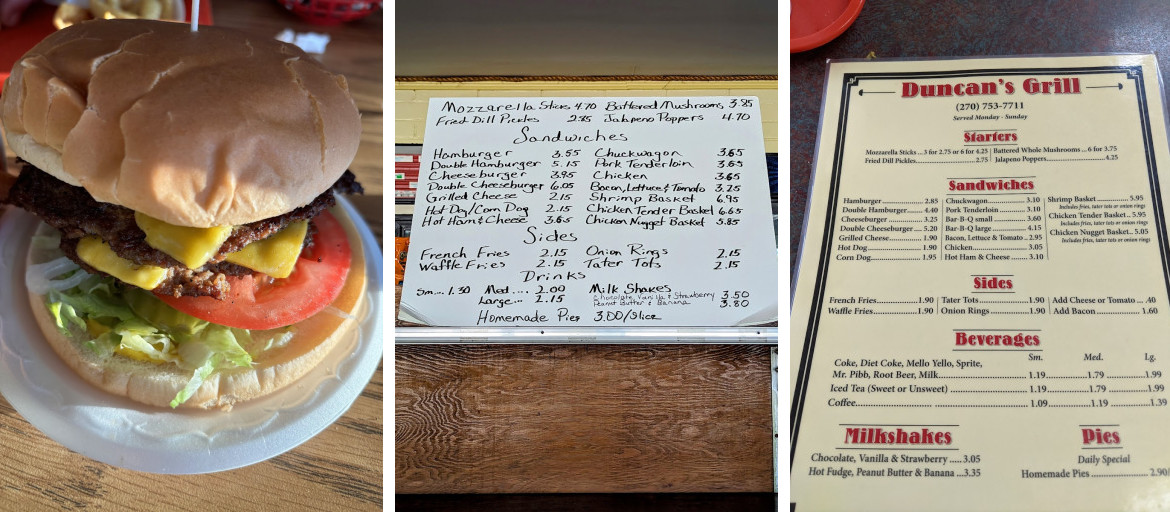 Mozzarella Sticks 4.70 Battered Mushrooms 3.85
Fried Dill Pickles 2.85 Jalapeno Poppers 4.70
Sandwiches
Hamburger 3.55 Chuckwagon 3.65
Double Hamburger 5.15 Pork Tenderloin 3.65
Cheeseburger 3.95 Chicken 3.65
Double Cheeseburger 6.05 Bacon, Lettuce & Tomato 3.25
Grilled Cheese 2.15 Shrimp Basket 6.95
Hot Dog/Corn Dog 2.15 Chicken Tender Basket 6.65
Hot Ham & Cheese 3.65 Chicken Nugget Basket 5.85
Sides
French Fries 2.15 Onion Rings 2.15
Waffle Fries 2.15 Tater Tots 2.15
Drinks
Sm... 1.50 Med.... 2.00 Milk Shakes
Large... 2.15 Chocolate, Vanilla & Strawberry 3.50
Peanut Butter & Banana 3.80
Homemade Pies 3.00/Slice
Duncan's Grill
(270) 753-7711
Served Monday - Sunday
Starters
Mozzarella Sticks ...3 for 2.75 or 6 for 4.25 Battered Whole Mushrooms ... 6 for 3.75
Fried Dill Pickles 2.75 Jalapeno Poppers 4.25
Sandwiches
Hamburger 2.85 Chuckwagon 3.10 Shrimp Basket 5.95
Double Hamburger 4.40 Pork Tenderloin 3.10 Includes fries, tater tots or onion rings
Cheeseburger 3.25 Bar-B-Q small 3.60 Chicken Tender Basket .. 5.95
Double Cheeseburger 5.20 Bar-B-Q large 4.15 Includes fries, tater tots or onion rings
Grilled Cheese 1.90 Bacon, Lettuce & Tomato .. 2.95 Chicken Nugget Basket.. 5.05
Hot Dog 1.95 Chicken 3.05 Includes fries, tater tots or onion rings
Corn Dog 1.95 Hot Ham & Cheese 3.10
Sides
French Fries 1.90 Tater Tots 1.90 Add Cheese or Tomato ... .40
Waffle Fries 1.90 Onion Rings 1.90 Add Bacon 1.60
Beverages
Sm. Med. Lg.
Coke, Diet Coke, Mello Yello, Sprite,
Mr. Pibb, Root Beer, Milk 1.19 1.79 1.99
Iced Tea (Sweet or Unsweet) 1.19 1.79 1.99
Coffee 1.09 1.19 1.39
Milkshakes Pies
Chocolate, Vanilla & Strawberry ..... 3.05 Daily Special
Hot Fudge, Peanut Butter & Banana ...3.35 Homemade Pies 2.90